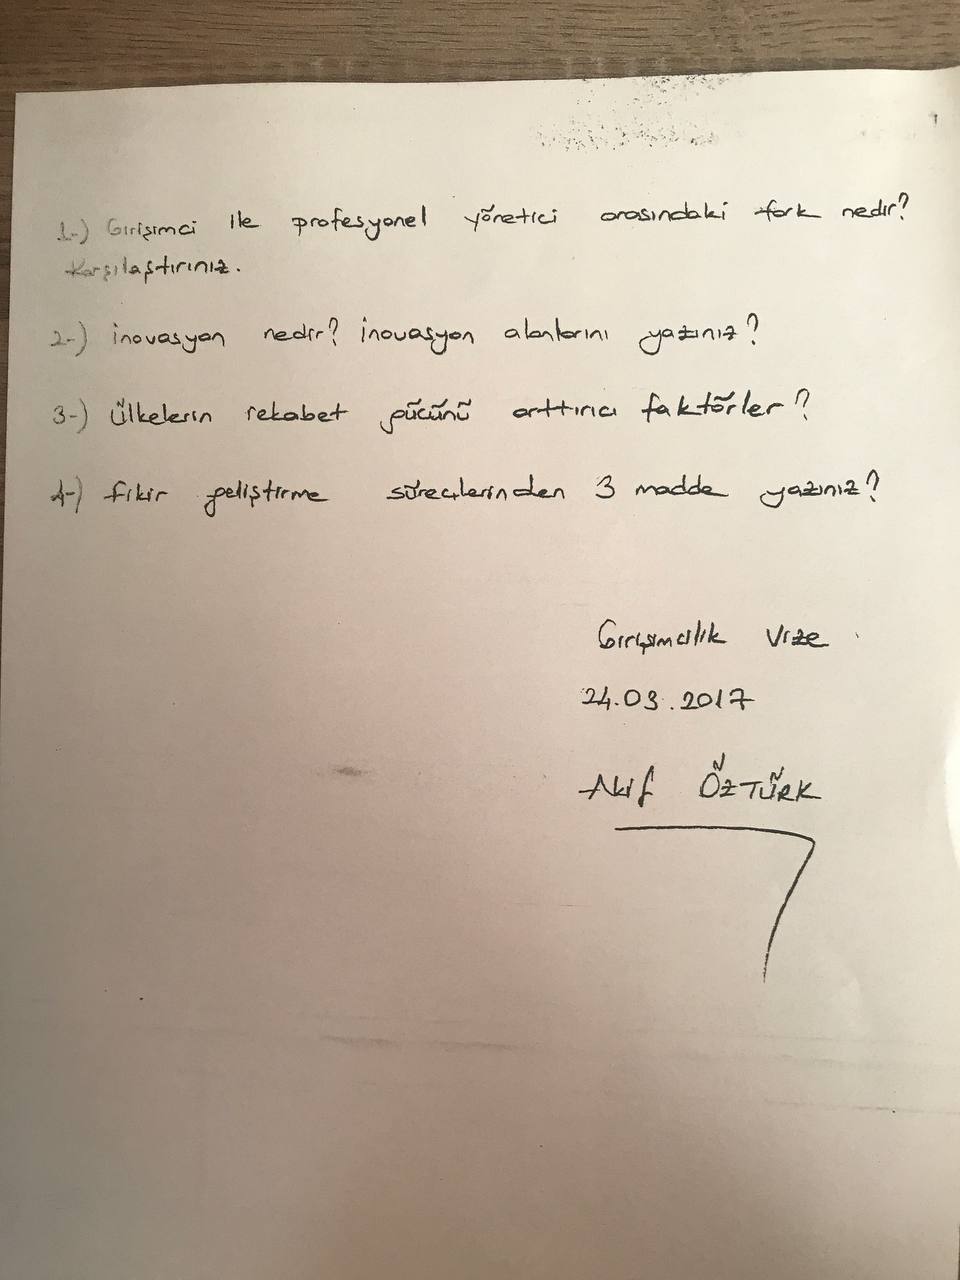 1-) Girişimci ile profesyonel yönetici arasındaki fark nedir?
Karşılaştırınız.
2-) inovasyon nedir? inovasyon alanlarını yazınız?
3-) Ülkelerin rekabet gücünü arttırıcı faktörler?
4-) fikir geliştirme süreçlerinden 3 madde yazınız?
Girişimcilik Vize
24.03.2017
Akif ÖZTÜRK